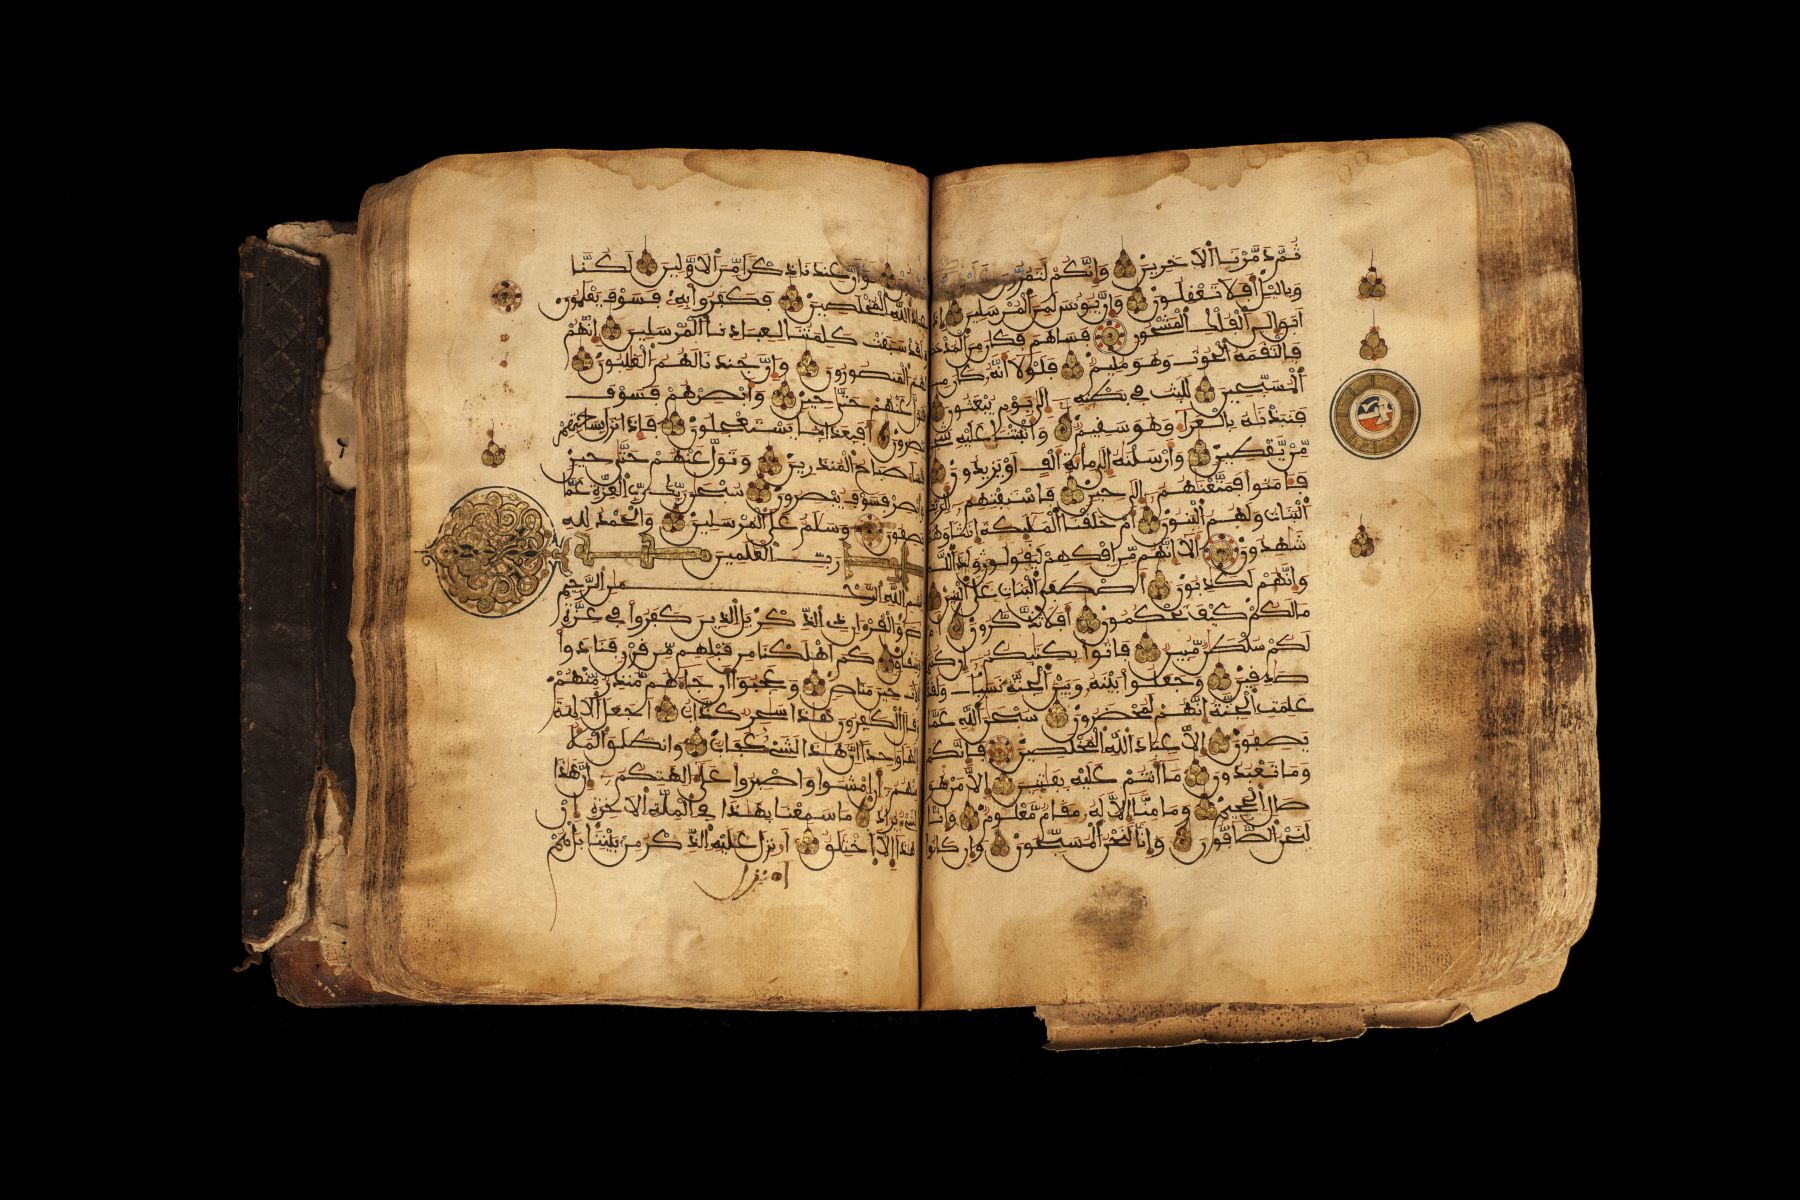 ثم دمرنا الاخرين وإنكم لتمرون
وباليل أفلا تعقلون وإن يونس لمن المرسلين إذ
أبق إلى الفلك المشحون فساهم فكان من المدحضين
فالتقمه الحوت وهو مليم فلولا أنه كان من
المسبحين للبث في بطنه إلى يوم يبعثون
فنبذنه بالعراء وهو سقيم وأنبتنا عليه شجرة
من يقطين وأرسلنه إلى مائة ألف أو يزيدون
فامنوا فمتعنهم إلى حين فاستفتهم ألربك
البنات ولهم البنون أم خلقنا المليكة إنثا وهم
شهدون ألا إنهم من إفكهم ليقولون ولد الله
وإنهم لكذبون أصطفى البنات على البنين
مالكم كيف تحكمون أفلا تذكرون أم
لكم سلطن مبين فاتوا بكتبكم إن كنتم
صدقين وجعلوا بينه وبين الجنة نسبا ولقد
علمت الجنة إنهم لمحضرون سبحن الله عما
يصفون إلا عباد الله المخلصين فإنكم
وما تعبدون ما أنتم عليه بفتنين إلا من هو
صال الجحيم وما منا إلا له مقام معلوم وإنا
لنحن الصافون وإنا لنحن المسبحون وإن كانوا
لو أن عندنا ذكرا من الاولين لكنا
عباد الله المخلصين فكفروا به فسوف يعلمون
ولقد سبقت كلمتنا لعبادنا المرسلين إنهم
لهم المنصورون وإن جندنا لهم الغلبون
فتول عنهم حتى حين وأبصرهم فسوف
يبصرون أفبعذابنا يستعجلون فإذا نزل بساحتهم
فساء صباح المنذرين وتول عنهم حتى حين
وأبصر فسوف يبصرون سبحن ربك رب العزة عما
يصفون وسلم على المرسلين والحمد لله
رب العلمين
بسم الله الرحمن الرحيم
ص والقرءان ذي الذكر بل الذين كفروا في عزة
وشقاق كم أهلكنا من قبلهم من قرن فنادوا
ولات حين مناص وعجبوا أن جاءهم منذر منهم
وقال الكفرون هذا سحر كذاب أجعل الالهة
إلها وحدا إن هذا لشيء عجاب وانطلق الملأ
منهم أن امشوا واصبروا على ءالهتكم إن هذا
لشيء يراد ما سمعنا بهذا في الملة الاخرة إن
هذا إلا اختلق أءنزل عليه الذكر من بيننا بل هم